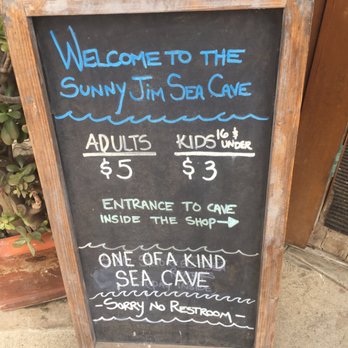 WELCOME TO THE
SUNNY JIM SEA CAVE
ADULTS KIDS 16 & UNDER
$5 $3
ENTRANCE TO CAVE
INSIDE THE SHOP →
ONE OF A KIND
SEA CAVE
- SORRY NO RESTROOM -